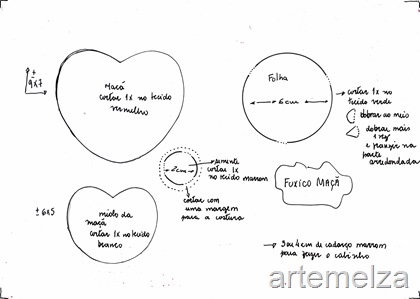 ±
9x7
maçã
cortar 1x no tecido
vermelho
Folha
6cm
→ cortar 1x no
tecido verde
dobrar ao meio
dobrar mais
1 vez
e franzir na
parte
arredondada
2cm
semente
cortar 1x
no tecido marrom
cortar com
uma margem
para a costura
FUXICO MAÇÃ
± 6x5
miolo da
maçã
cortar 1x no tecido
branco
→ 3 ou 4cm de cadarço marrom
para fazer o cabinho
artemelza